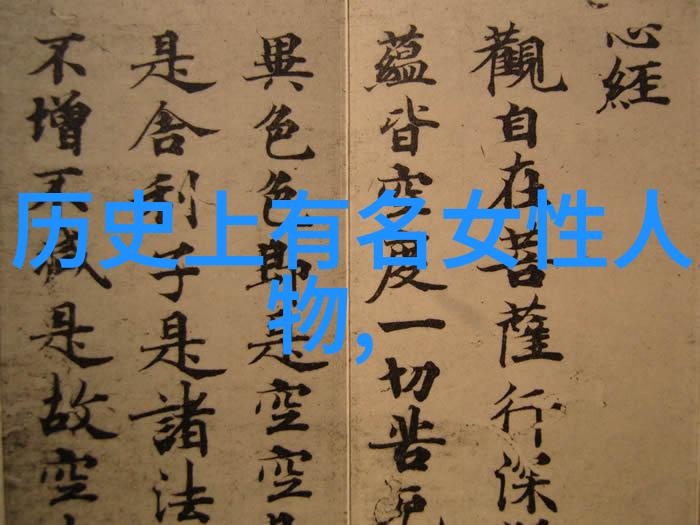 心經
觀自在菩薩行深
蘊皆空度一切苦厄
異色色即是空空
是舍利子是諸法
不增不減是故空
历史上有名女性人
物,